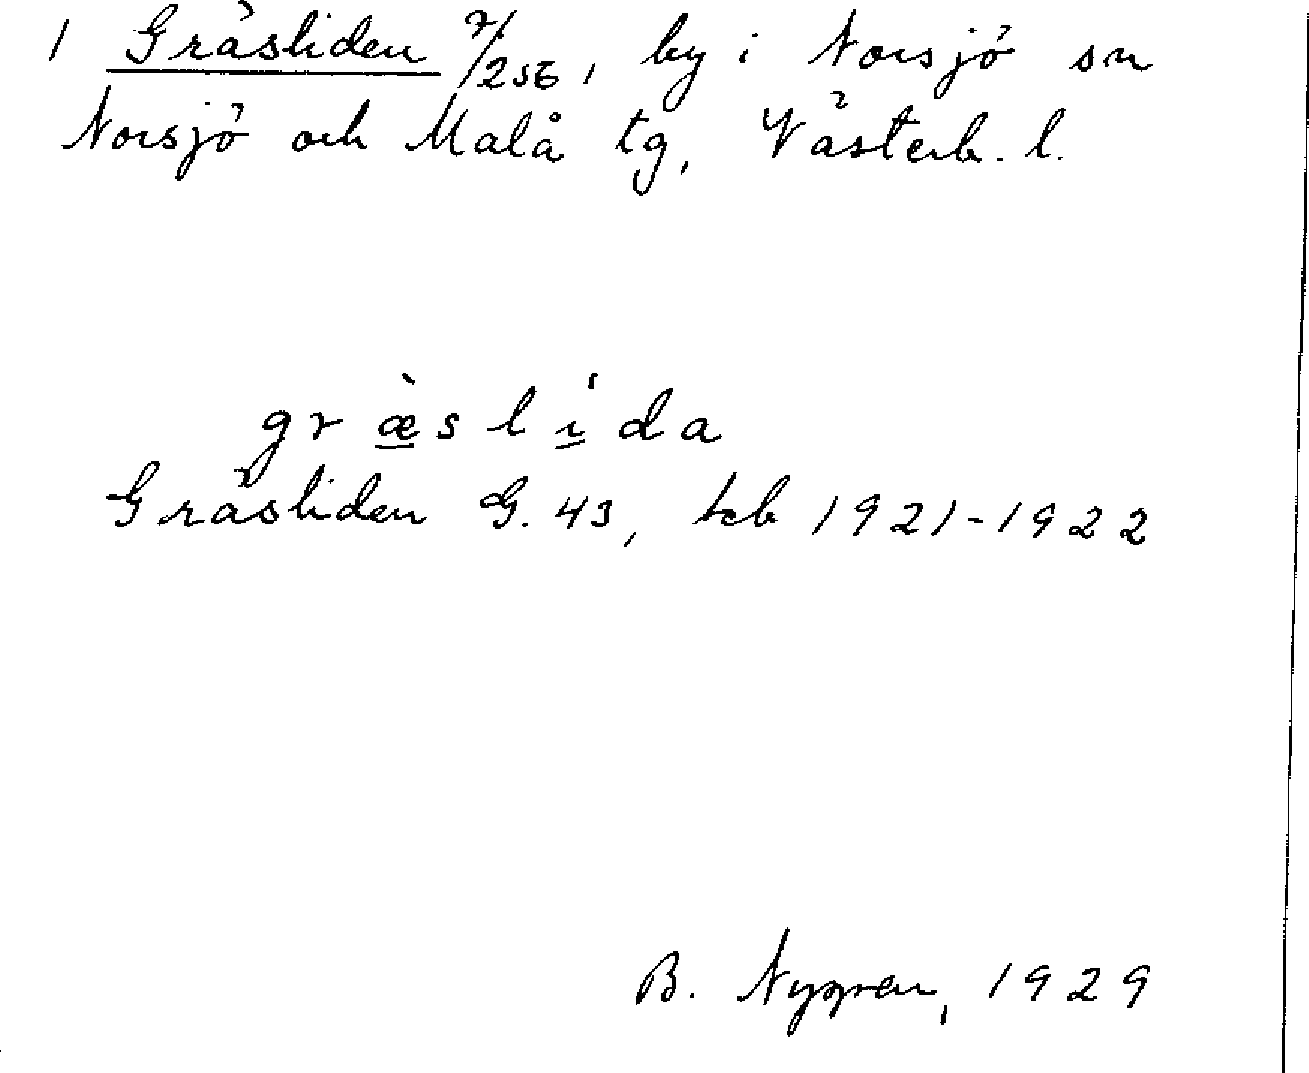 1 Gräsliden 7/256, by i Norsjö sn
Norsjö och Malå tg, Västerb. l.
græ̀slída
Gräsliden G. 43, tcb 1921-1922
B. Nygren, 1929